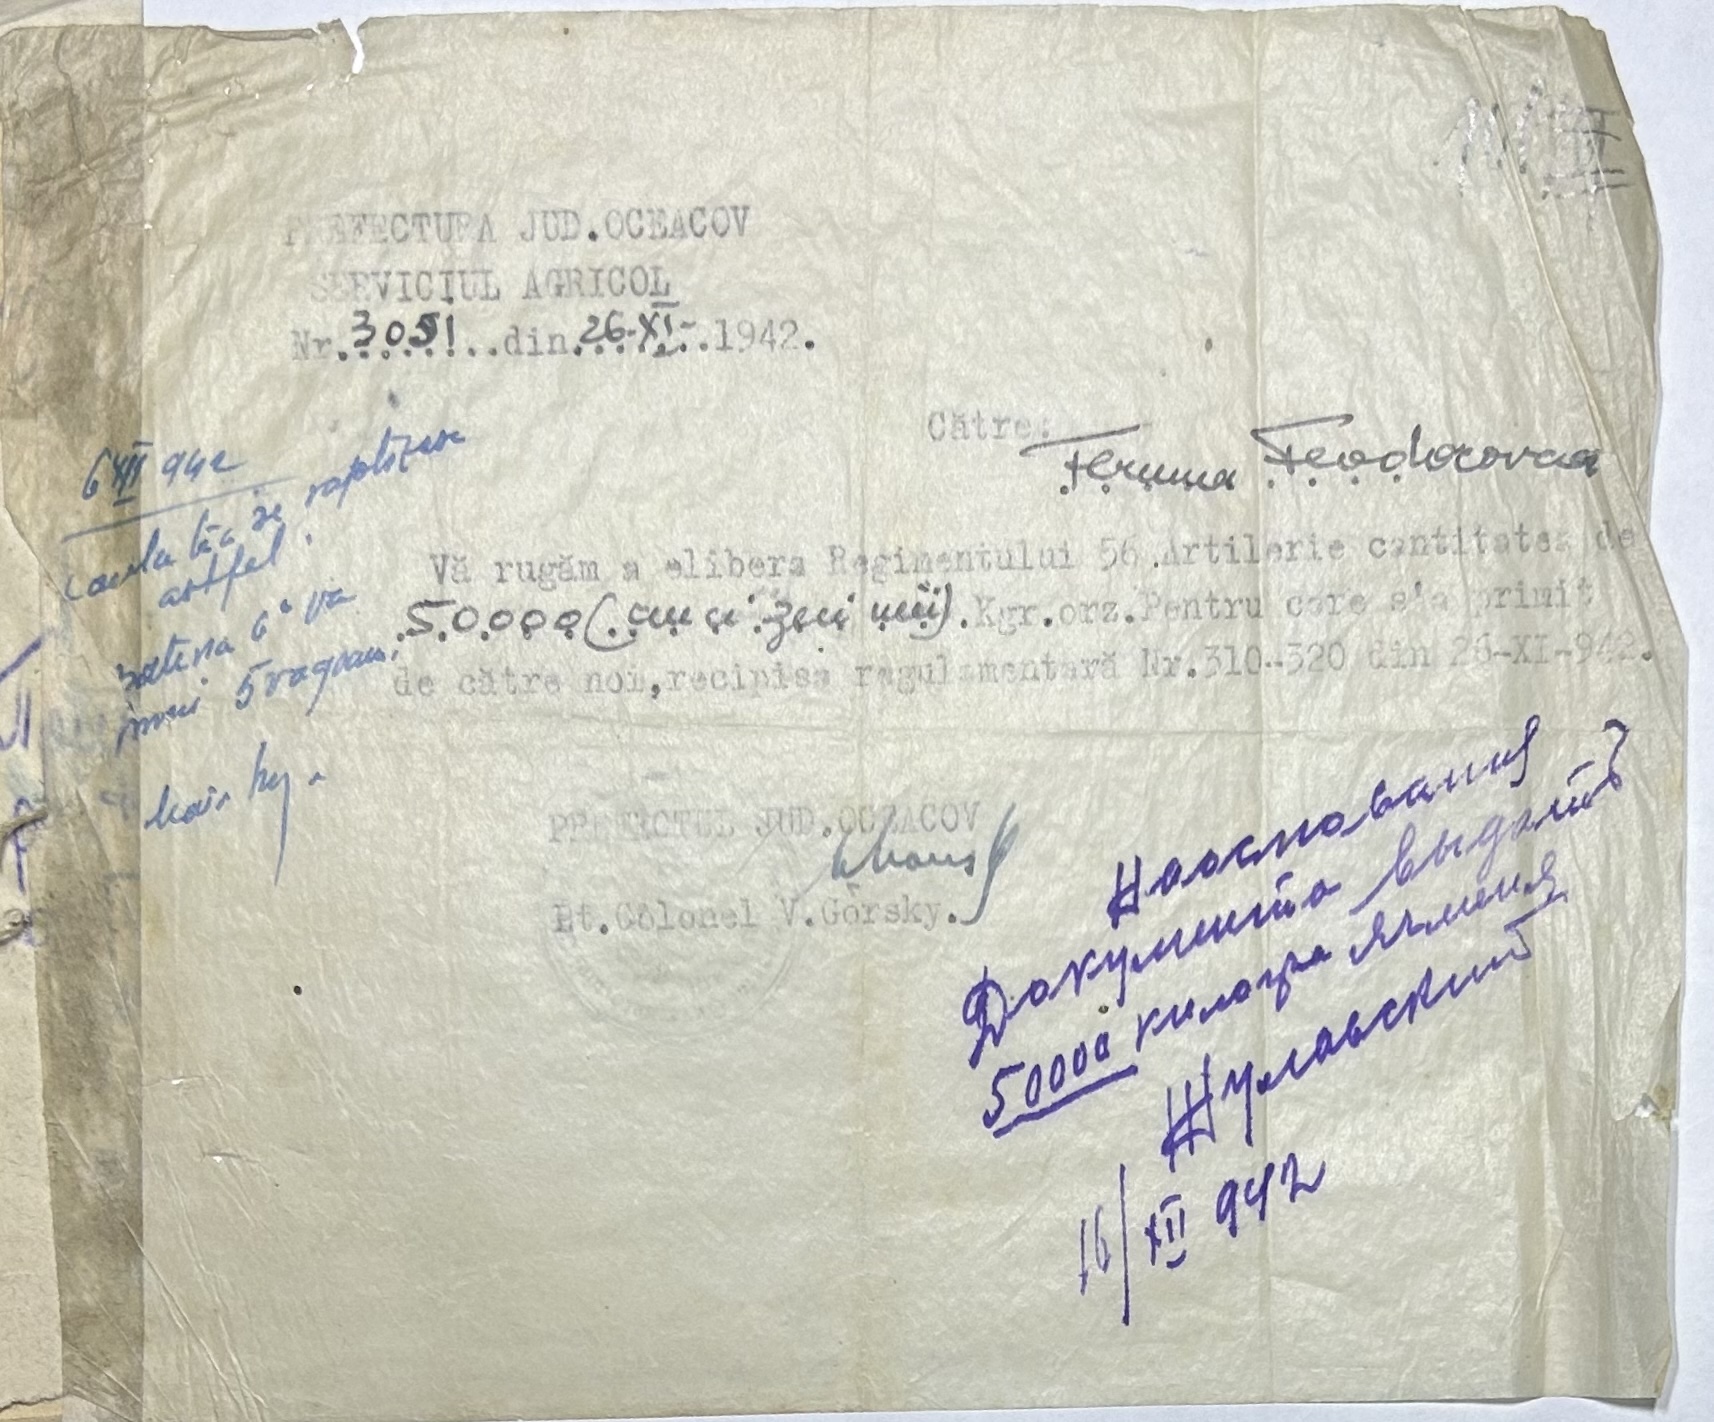 PREFECTURA JUD.OCEACOV
SERVICIUL AGRICOL
Nr.3051..din.26-XI-..1942.
Către:
Ferma Feodorovca
Vă rugăm a elibera Regimentului 56.Artilerie cantitatea de
50000 (cinci zeci mii).Kgr.orz.Pentru care s'a primit
de către noi,recipisa regulamentară Nr.310-320 din 26-XI-942.
PREFECTUL JUD.OCEACOV
Lt.Colonel V.Gorsky.
6 XII 942
se
astfel
bateria 6ª va
primi 5 vagoane
На основания
Документа выдать
50000 килогр ячменя
Жулавский
16/XII 942